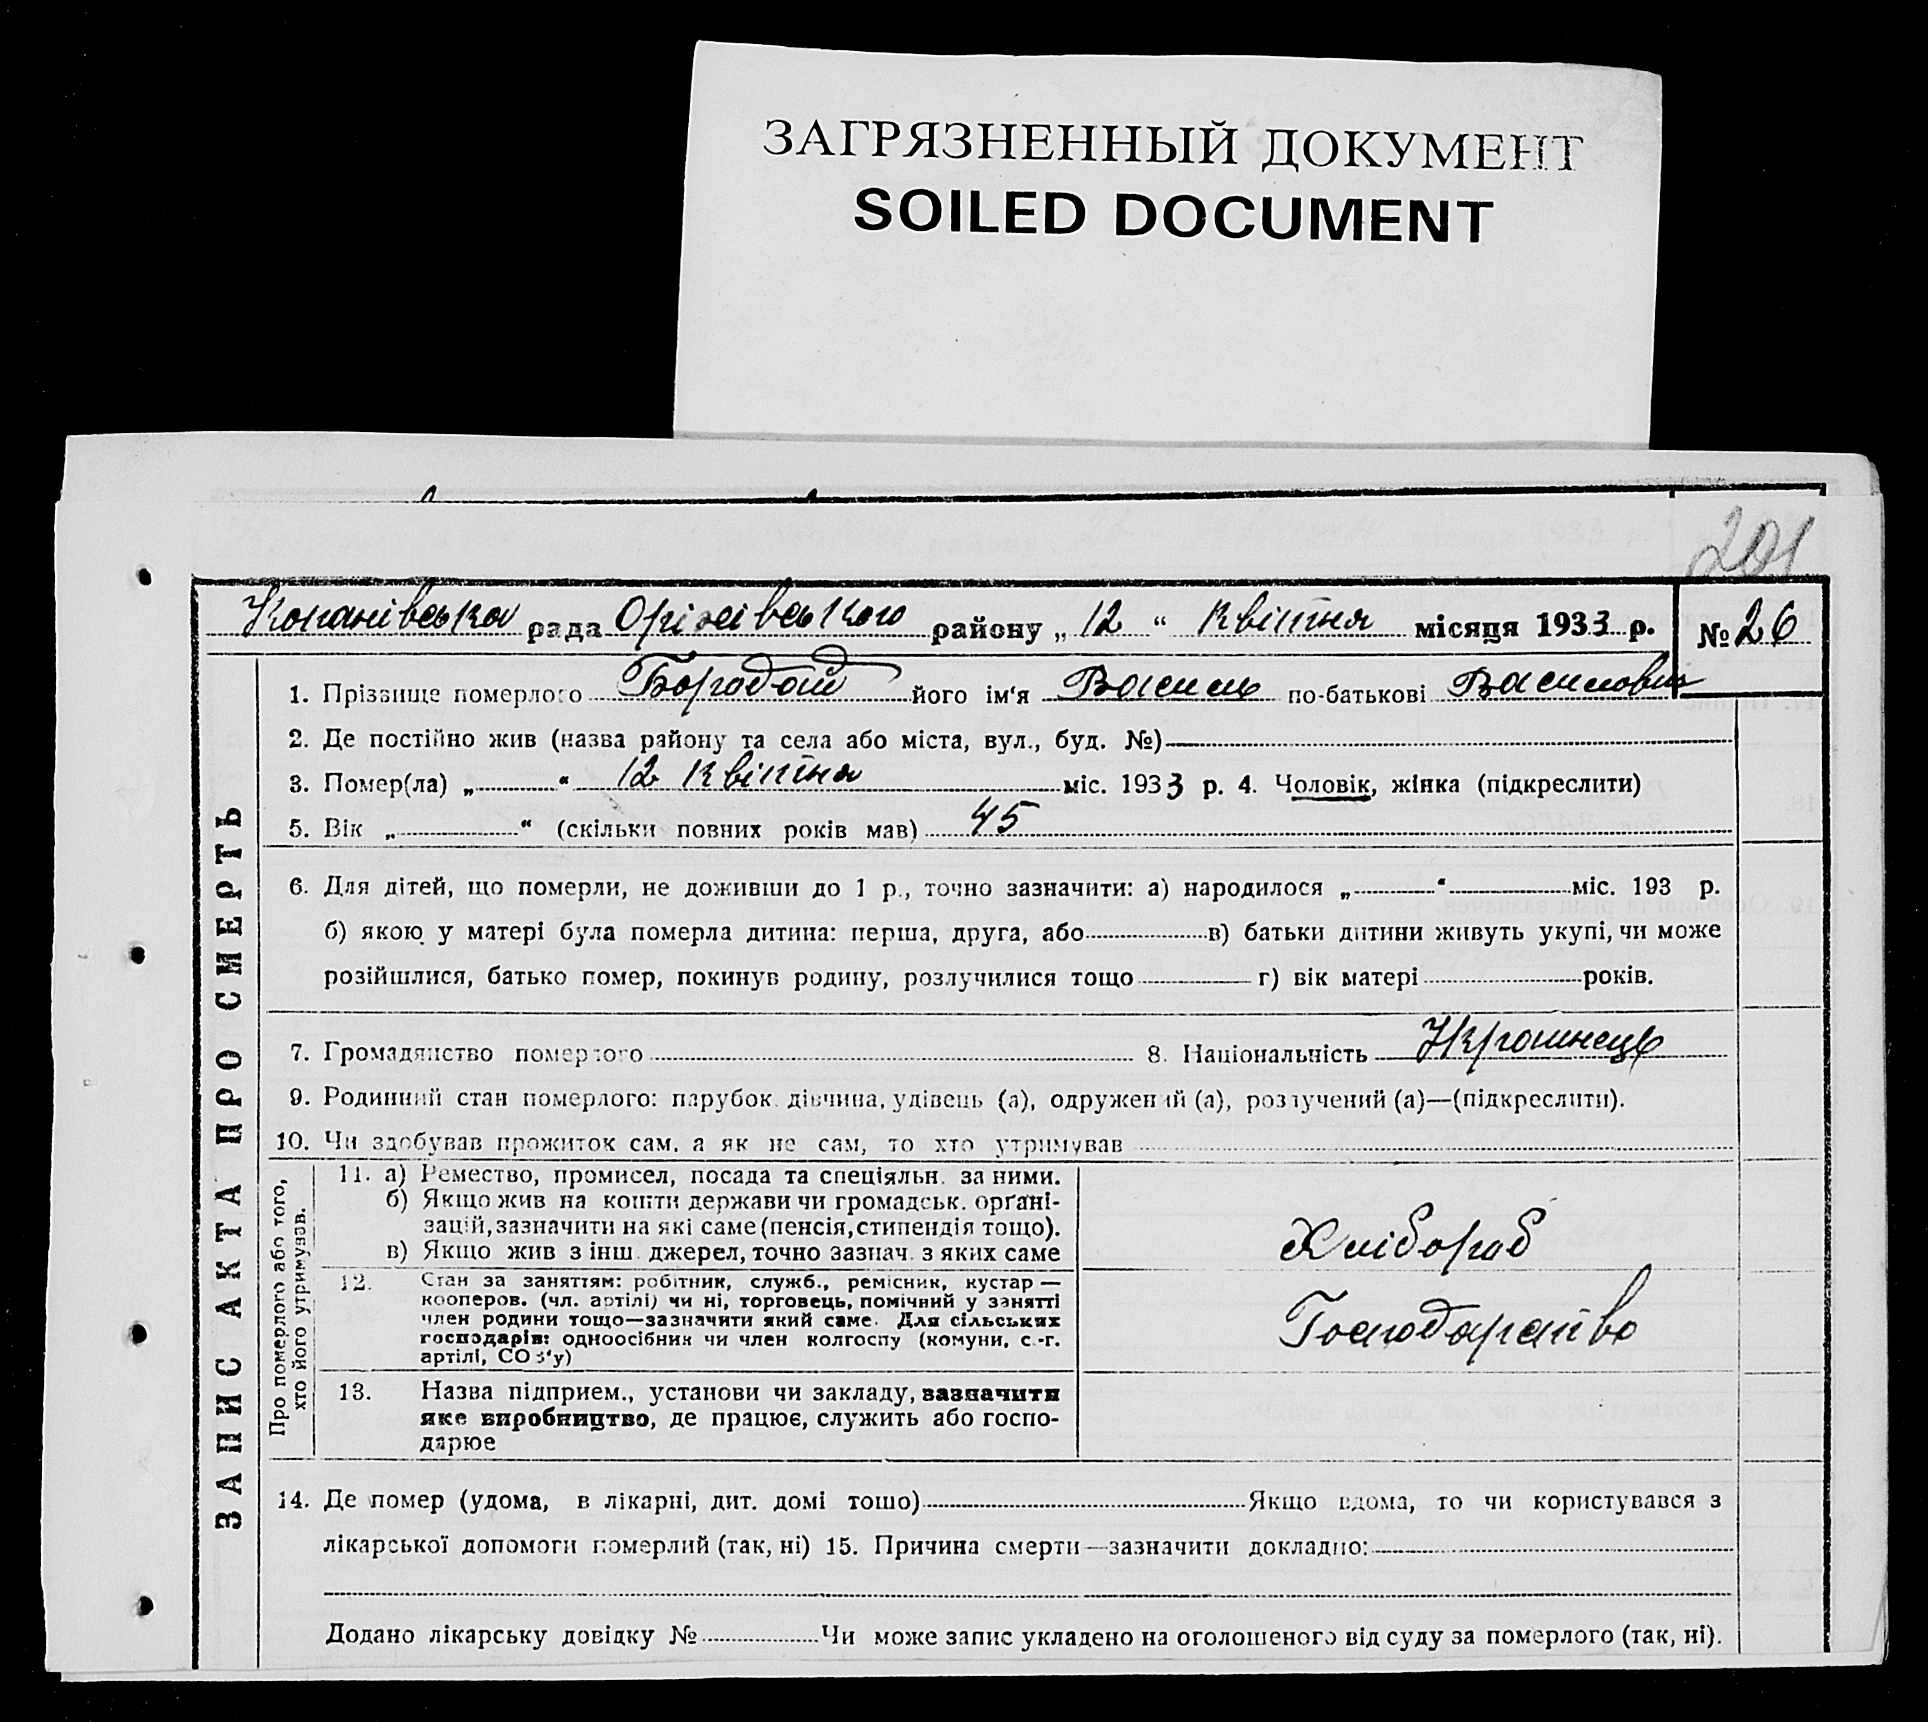 ЗАГРЯЗНЕННЫЙ ДОКУМЕНТ
SOILED DOCUMENT
201
Копанівська рада Оріхівського району „ 12 “ Квітня місяця 1933 р. № 26
ЗАПИС АКТА ПРО СМЕРТЬ
1. Прізвище померлого Бородай його ім‘я Василь по-батькові Василович
2. Де постійно жив (назва району та села або міста, вул., буд. №)
3. Помер(ла) „ “ 12 Квітня міс. 1933 р. 4. Чоловік, жінка (підкреслити)
5. Вік „ “ (скільки повних років мав) 45
6. Для дітей, що померли, не доживши до 1 р., точно зазначити: а) народилося „ “ міс. 193 р.
б) якою у матері була померла дитина: перша, друга, або в) батьки дитини живуть укупі, чи може
розійшлися, батько помер, покинув родину, розлучилися тощо г) вік матері років.
7. Громадянство померлого 8. Національність Украінець
9. Родинний стан померлого: парубок, дівчина, удівець (а), одружений (а), розлучений (а)—(підкреслити).
10. Чи здобував прожиток сам, а як не сам, то хто утримував
Про померлого або того,
хто його утримував.
11. а) Ремество, промисел, посада та спеціяльн. за ними.
б) Якщо жив на кошти держави чи громадськ. орґані-
зацій, зазначити на які саме (пенсія, стипендія тощо).
в) Якщо жив з інш. джерел, точно зазнач. з яких саме
Хлібороб
12. Стан за заняттям: робітник, служб., ремісник, кустар —
кооперов. (чл. артілі) чи ні, торговець, помічний у занятті
член родини тощо—зазначити який саме. Для сільських
господарів: одноосібник чи член колгоспу (комуни, с.-г.
артілі, СОЗ‘у)
Господарство
13. Назва підприєм., установи чи закладу, зазначити
яке виробництво, де працює, служить або госпо-
дарює
14. Де помер (удома, в лікарні, дит. домі тощо) Якщо вдома, то чи користувався з
лікарської допомоги померлий (так, ні) 15. Причина смерти—зазначити докладно:
Додано лікарську довідку № Чи може запис укладено на оголошеного від суду за померлого (так, ні).